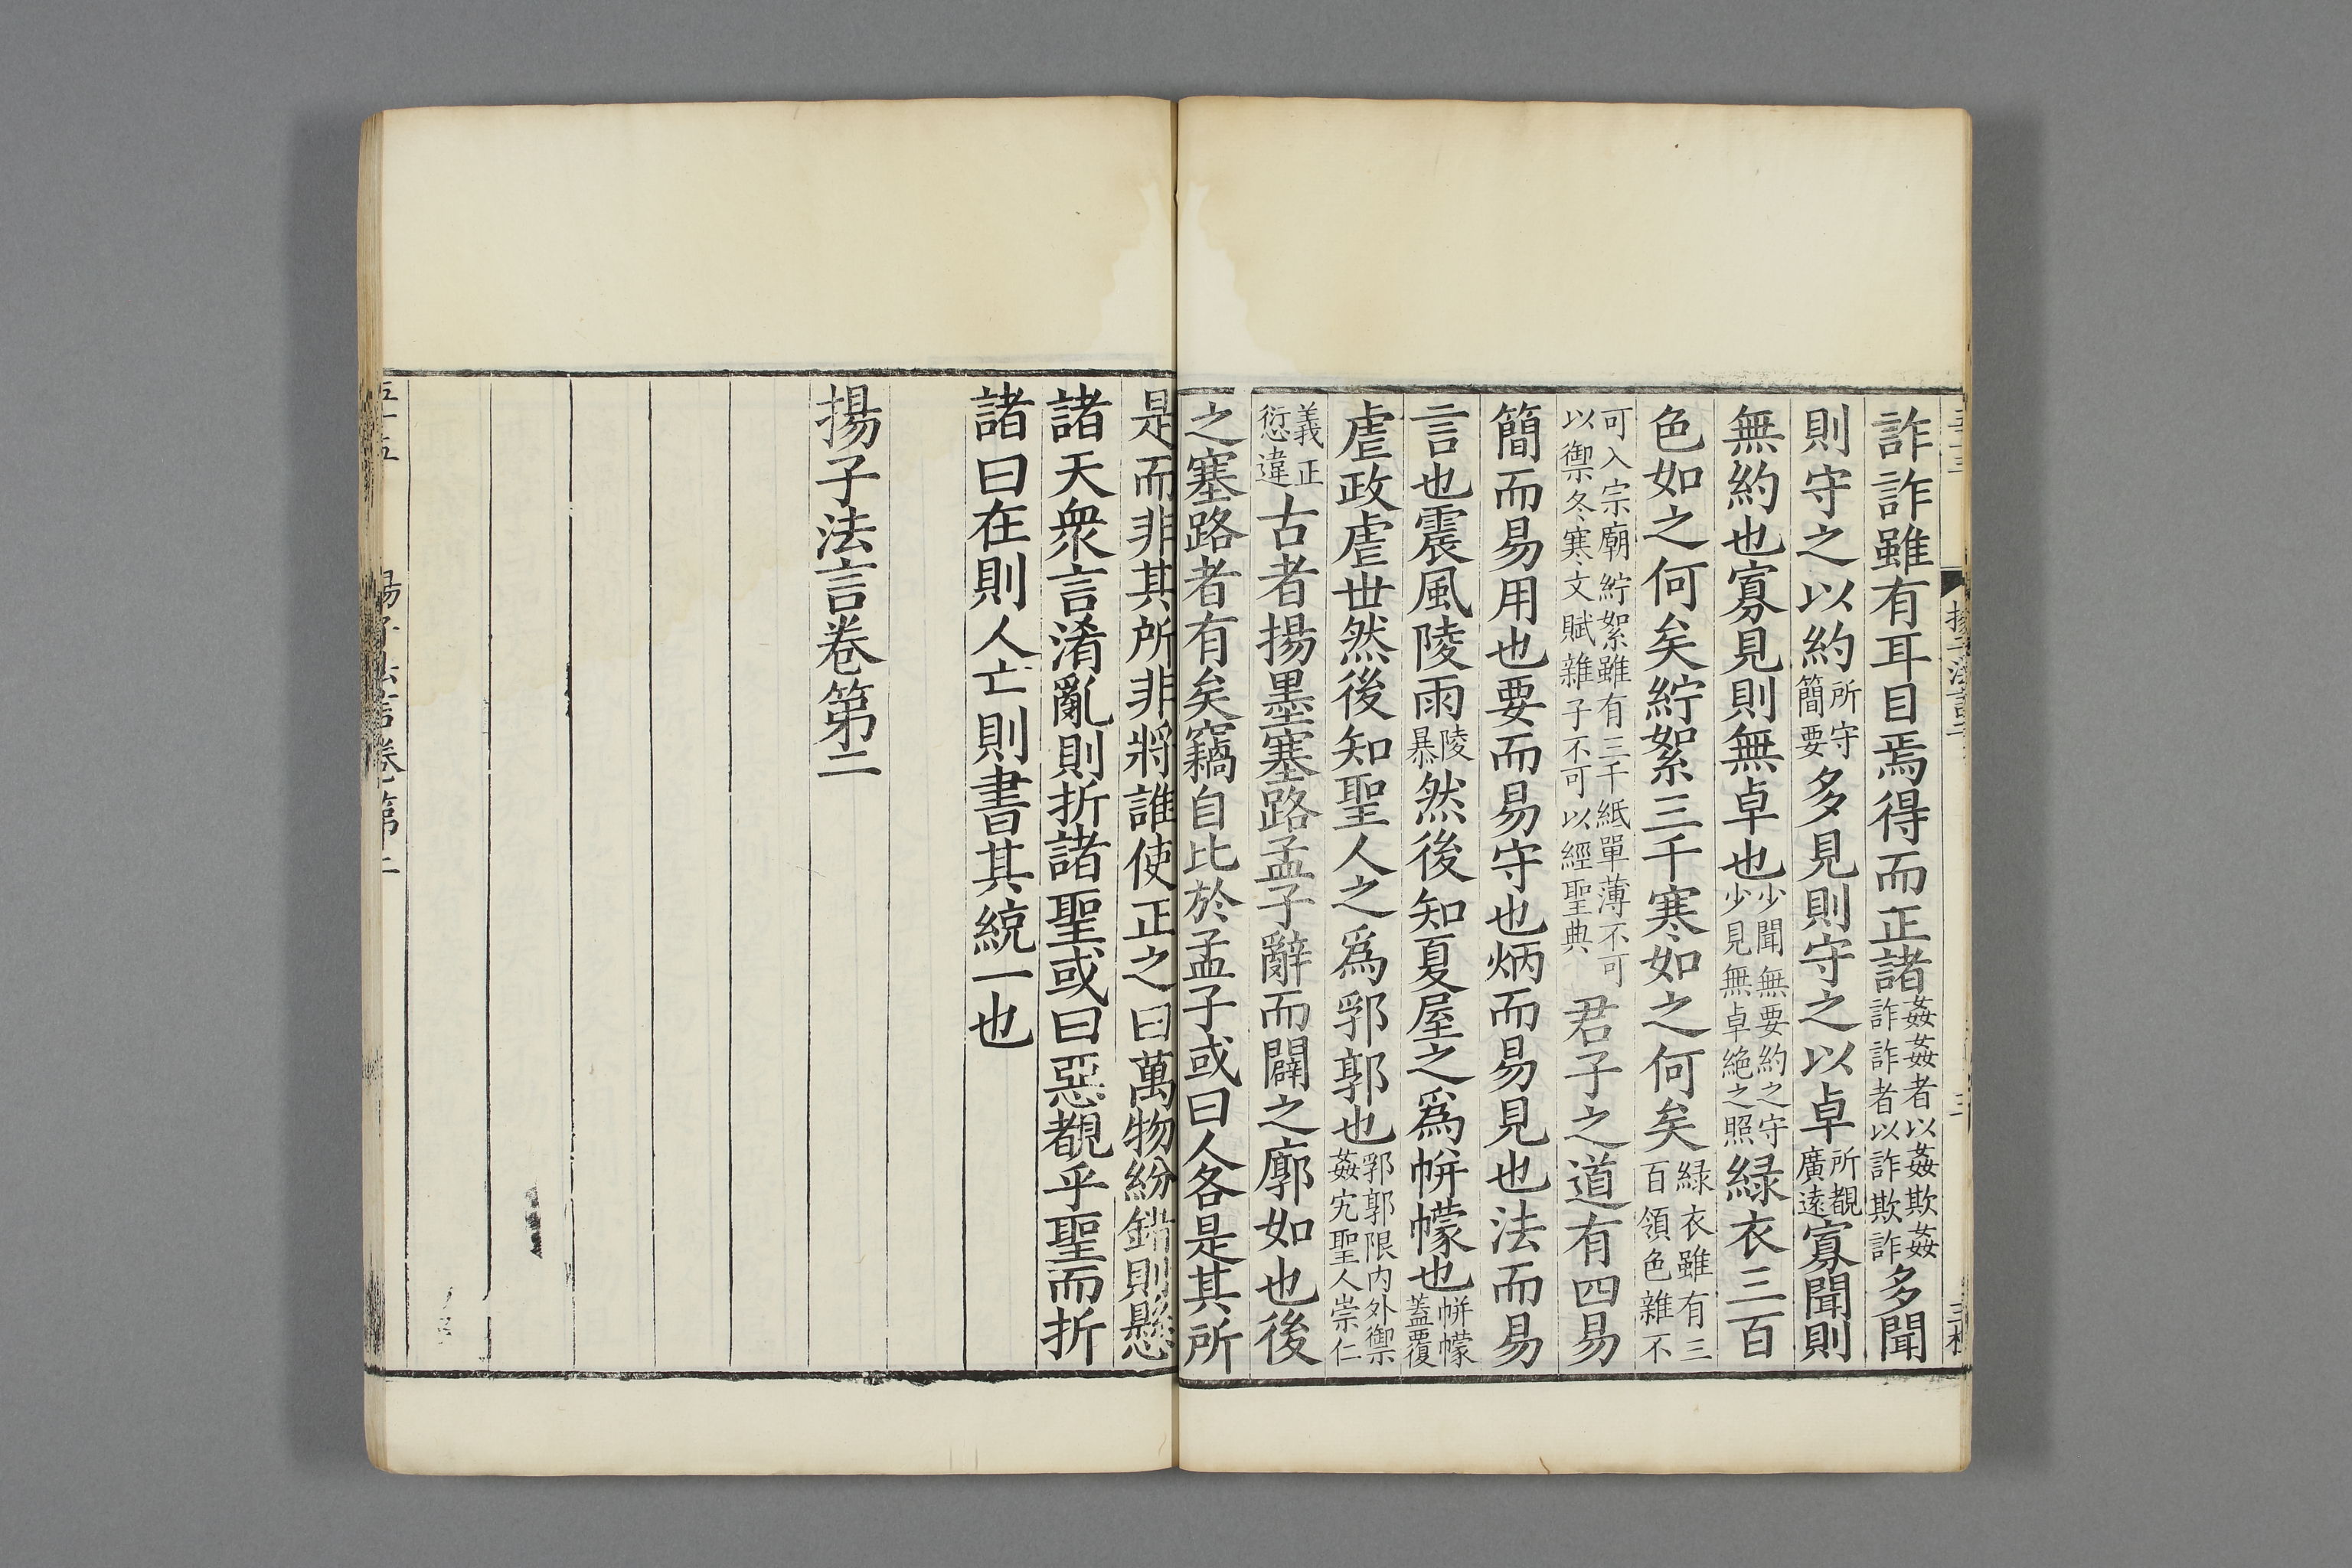 詐詐雖有耳目焉得而正諸姦姦者以姦欺姦詐詐者以詐欺詐多聞
則守之以約所守簡要多見則守之以卓所覩廣遠寡聞則
無約也寡見則無卓也少聞無要約之守少見無卓絶之照綠衣三百
色如之何矣紵絮三千寒如之何矣綠衣雖有三百領色雜不
可入宗廟紵絮雖有三千紙單薄不可以禦冬寒文賦雜子不可以經聖典君子之道有四易
簡而易用也要而易守也炳而易見也法而易
言也震風陵雨陵暴然後知夏屋之為帡幪也帡幪蓋覆
虐政虐世然後知聖人之為郛郭也郛郭限内外禦姦宄聖人崇仁
義正愆違古者揚墨塞路孟子辭而闢之廓如也後
之塞路者有矣竊自比於孟子或曰人各是其所
是而非其所非將誰使正之曰萬物紛錯則懸
諸天衆言淆亂則折諸聖或曰惡覩乎聖而折
諸曰在則人亡則書其統一也
揚子法言卷第二
揚子法言卷第二